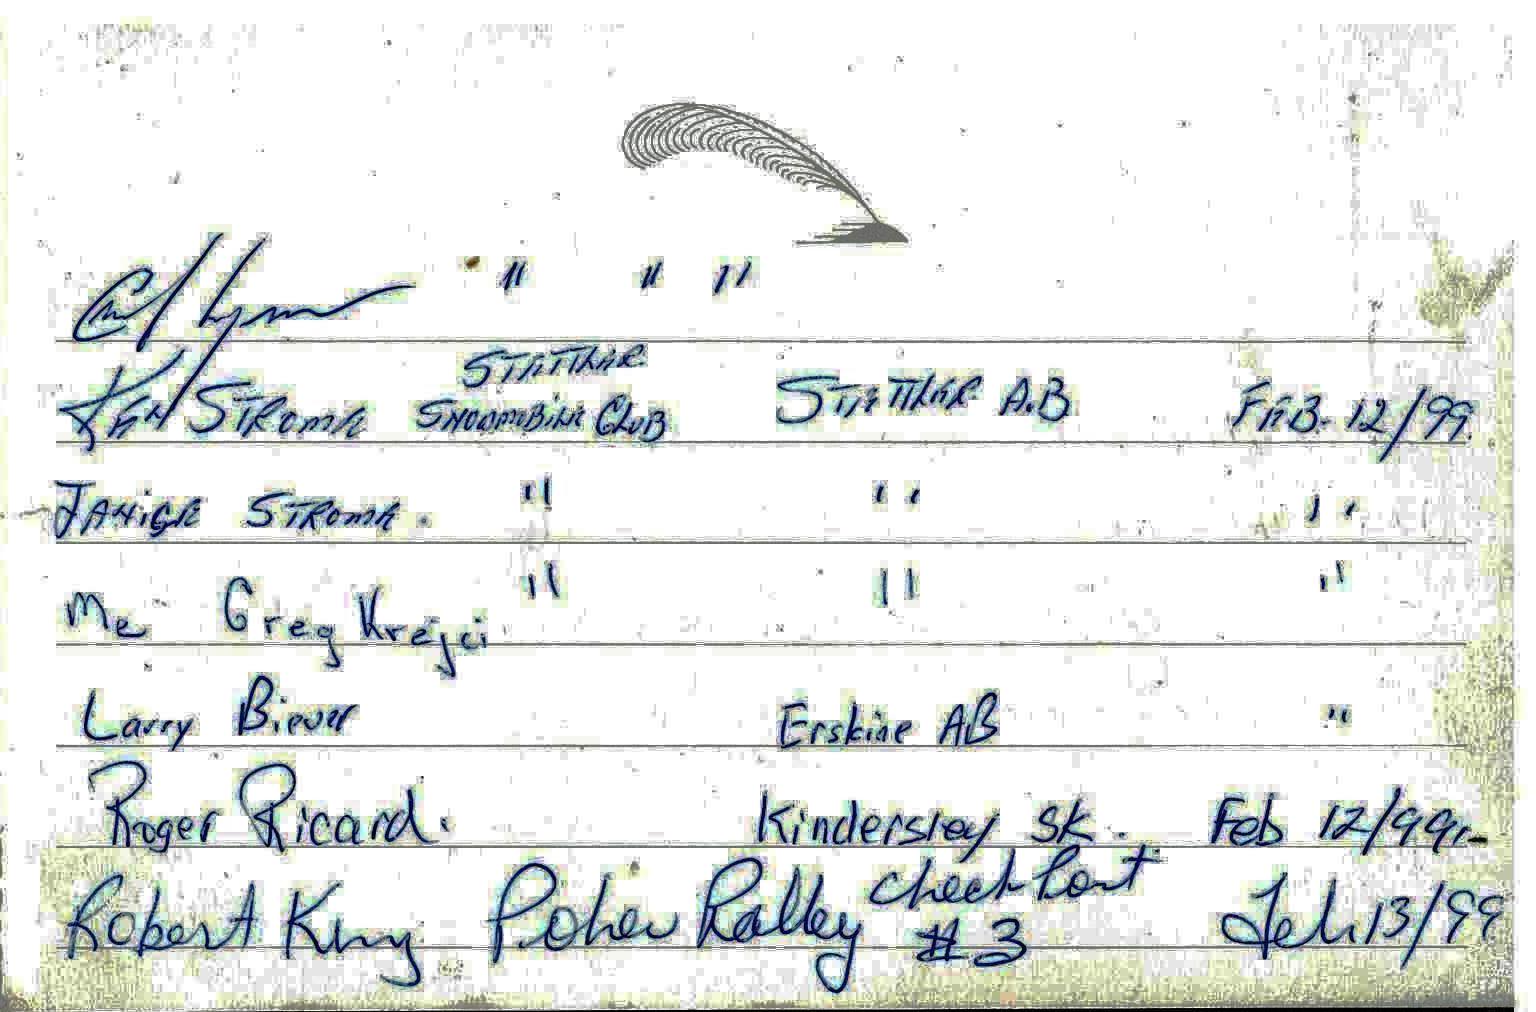 " " "
STETTLER
KEN STROMA SNOWMOBILE CLUB STETTLER A.B FEB. 12/99
JANICE STROMA. " " "
Me Greg Krejci " " "
Larry Biever Erskine AB "
Roger Ricard. Kindersley SK. Feb 12/99
Robert King Poker Ralley check Point
#3 Feb. 13/99